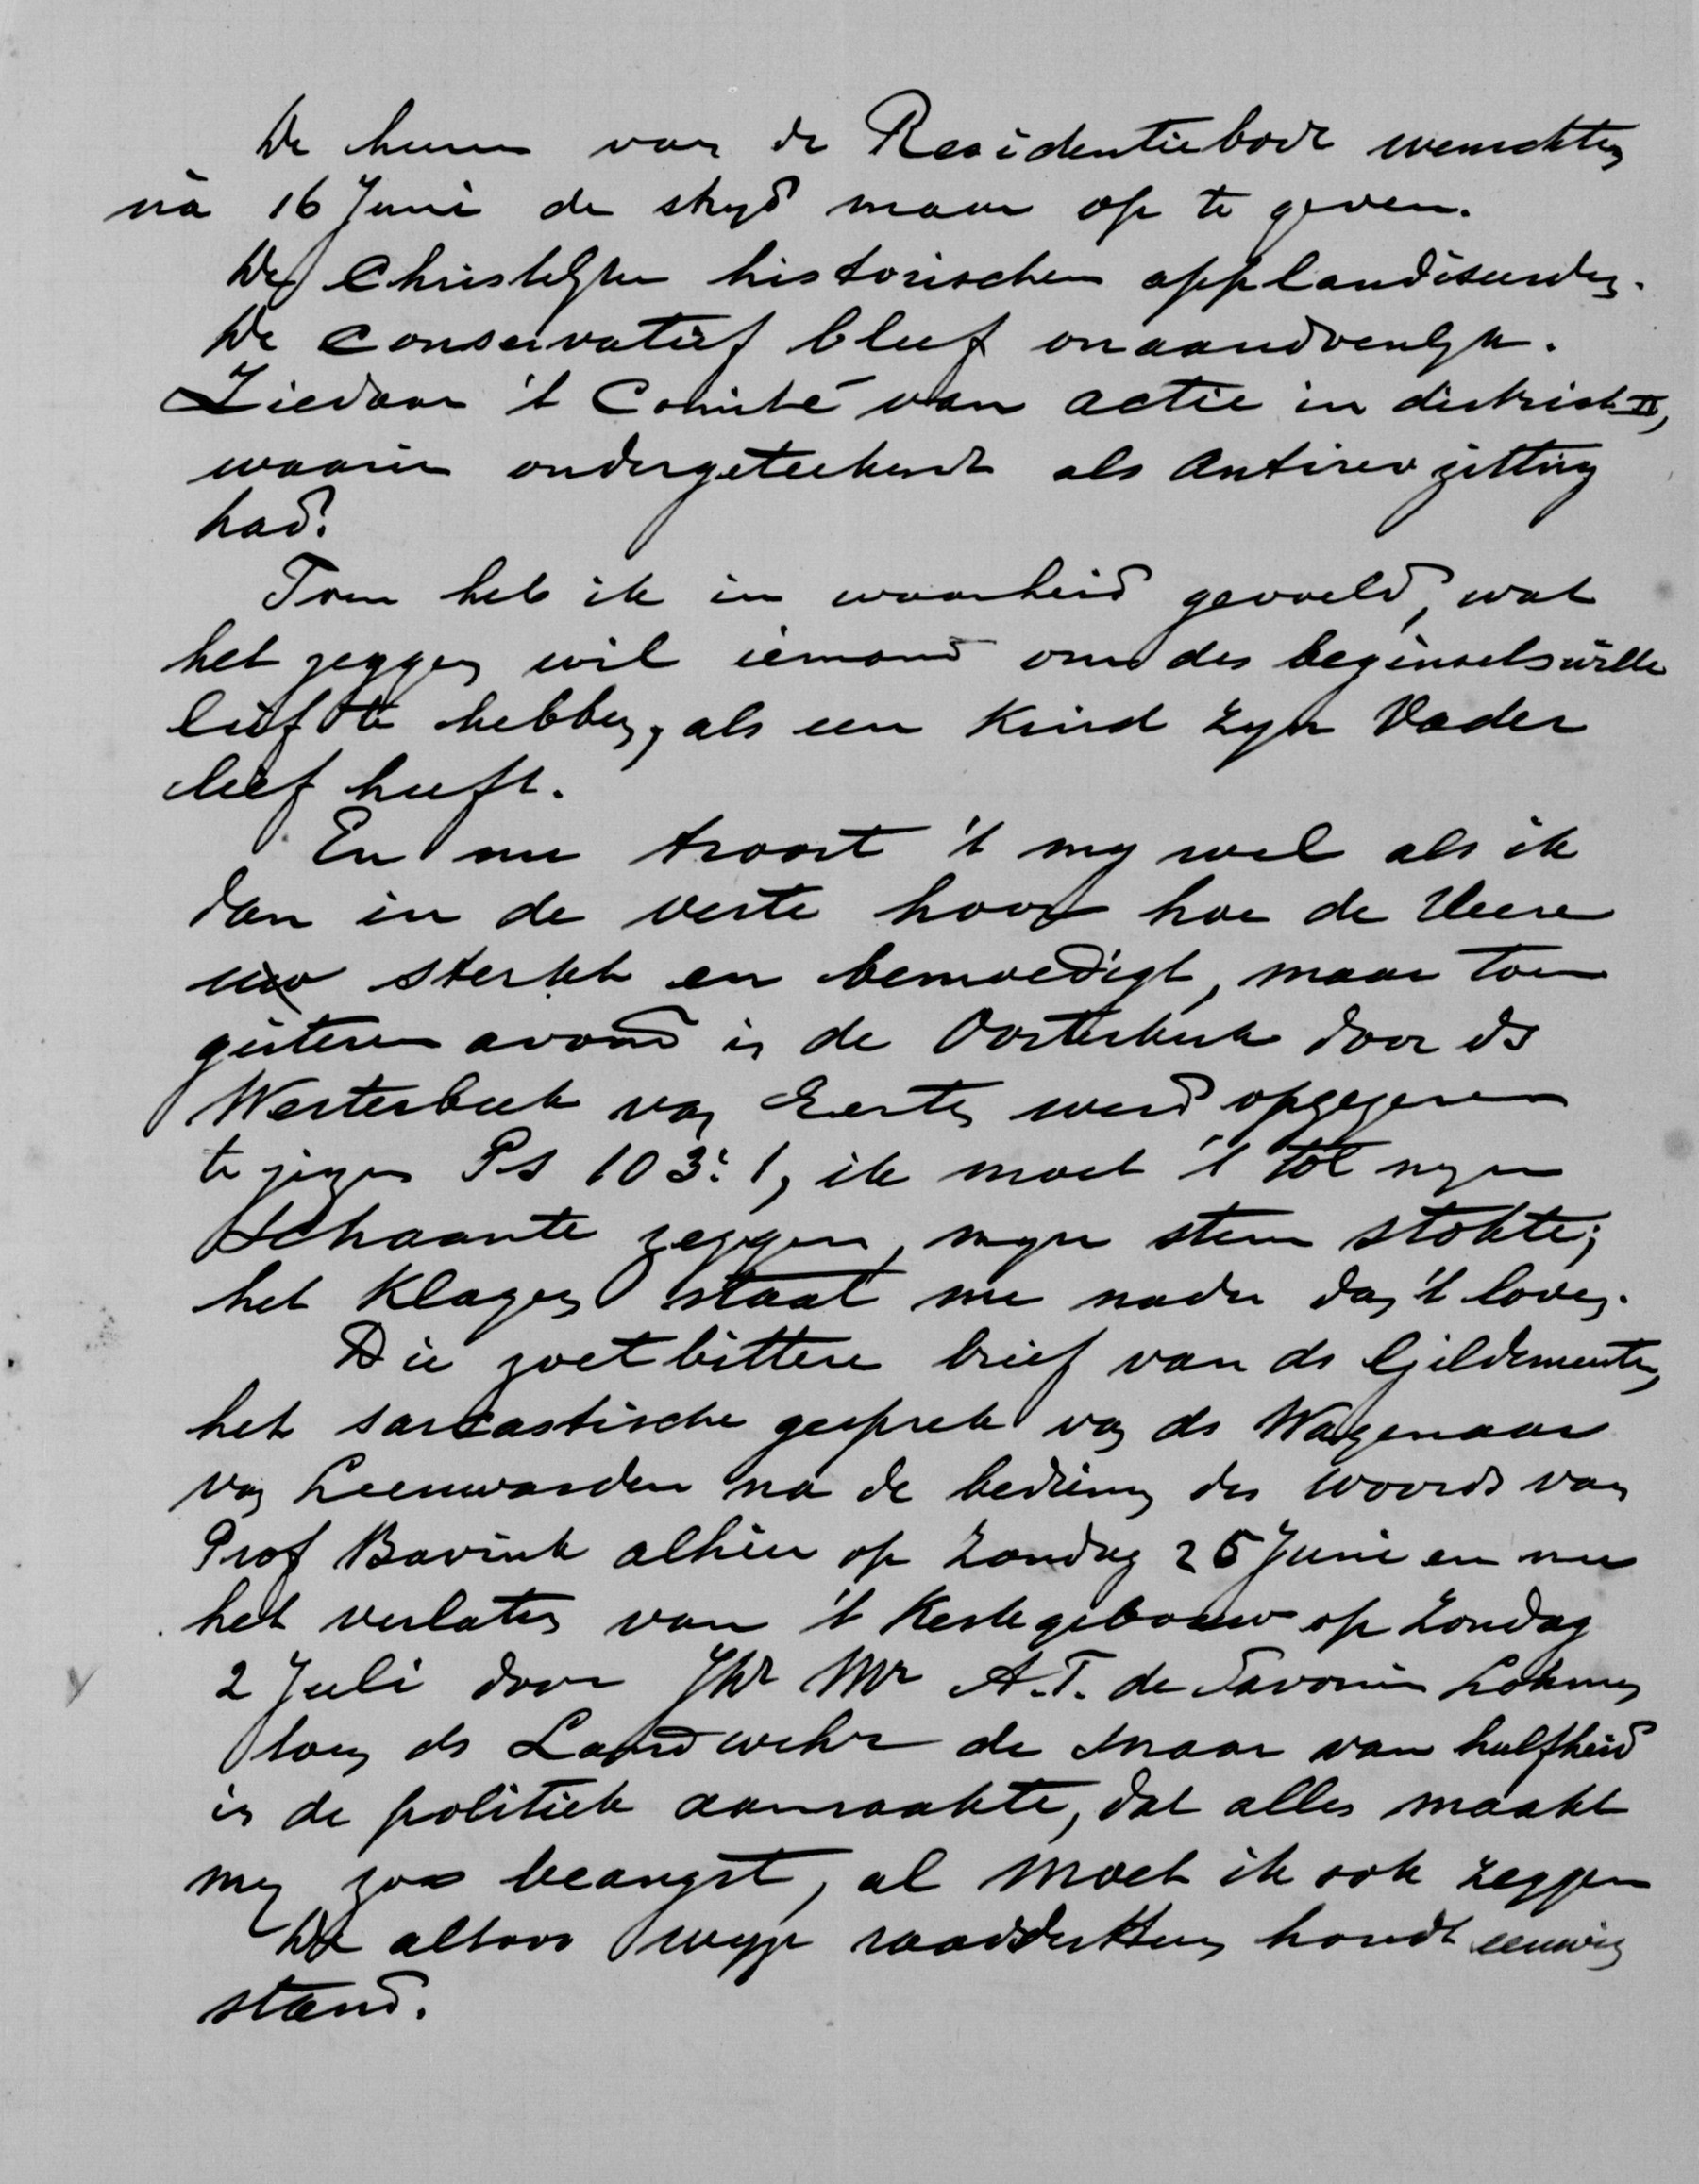 De heeren van de Residentiebode wenschten
na 16 Juni de stryd maar op te geven.
De Christelyke historischen applaudiseerden.
De conservatief bleef onaandoenlyk.
Ziedaar 't Comité van actie in district II,
waarin ondergeteekende als Antirev zitting
had.
Toen heb ik in waarheid gevoeld, wat
het zeggen wil iemand om des beginselswille
lief te hebben, als een kind zyn Vader
lief heeft.
En nu troost 't my wel als ik
dan in de verte hoor hoe de Heere
uw sterkt en bemoedigt, maar toen
gisteren avond in de Oosterkerk door ds
Westerbeek van Eerten werd opgegeven
te zingen Ps 103:1, ik moet 't tot myn
schaamte zeggen, myn stem stokte;
het klagen staat me nader dan 't loven.
Die zoetbittere brief van ds Gildemeester,
het sarcastische gesprek van ds Wagenaar
van Leeuwarden na de bediening des woords van
Prof Bavink alhier op Zondag 25 Juni en nu
het verlaten van 't Kerkgebouw op Zondag
2 Juli door Jhr Mr A.F. de Savornin Lohman
toen ds Landwehr de snaar van halfheid
in de politiek aanraakte, dat alles maakt
my zoo beangst, al moet ik ook zeggen
De altoos wyze raad des Heeren houdt eeuwig
stand.